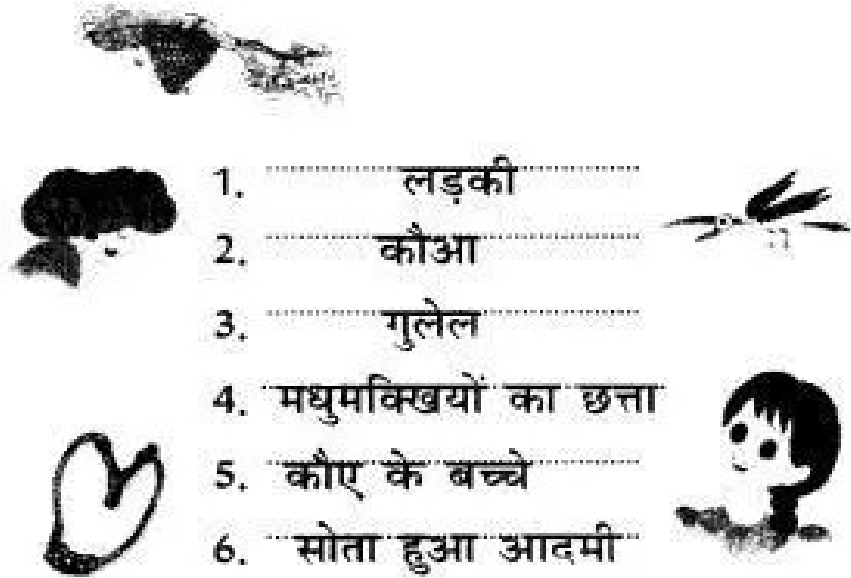 1. लड़की
2. कौआ
3. गुलेल
4. मधुमक्खियों का छत्ता
5. कौए के बच्चे
6. सोता हुआ आदमी